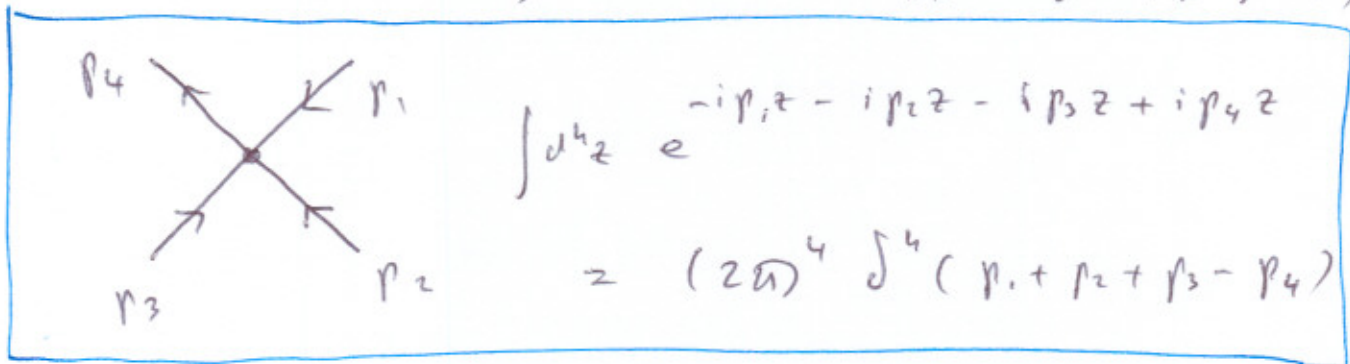 p₄ p₁ ∫d⁴z e^{-ip₁z - ip₂z - ip₃z + ip₄z}
p₃ p₂ = (2π)⁴ δ⁴(p₁ + p₂ + p₃ - p₄)